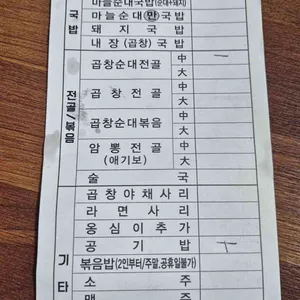 마늘순대국밥(순대+돼지)
마늘순대(만)국밥
돼지국밥
내장(곱창)국밥
국밥
곱창순대전골 中 一
大
곱창전골 中
大
곱창순대볶음 中
大
암뽕전골 (애기보) 中
大
술국
전골/볶음
곱창야채사리
라면사리
옹심이추가
공기밥 ㅜ
볶음밥(2인부터/주말,공휴일불가)
소주
맥주
기타